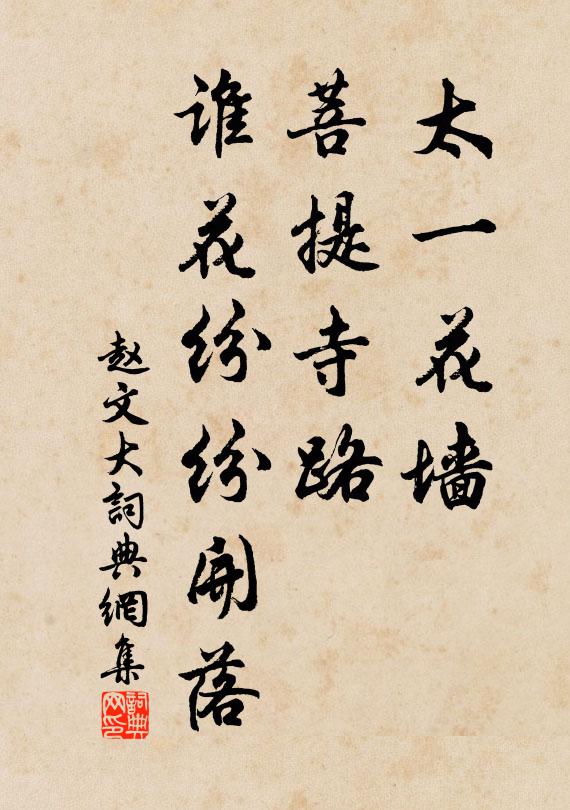 太一花墙
菩提寺路
谁花纷纷開落
赵文大詞典網集
詞典网印